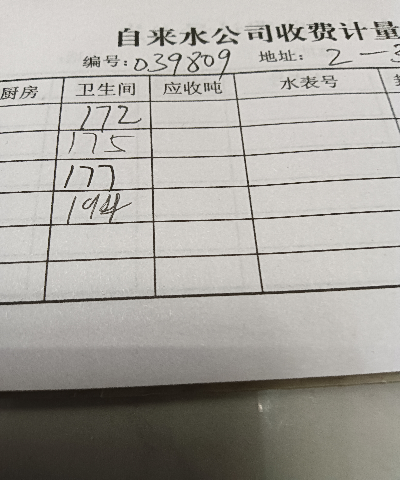 自来水公司收费计量
编号: 039809 地址: 2-3
厨房 卫生间 应收吨 水表号
172
175
177
194